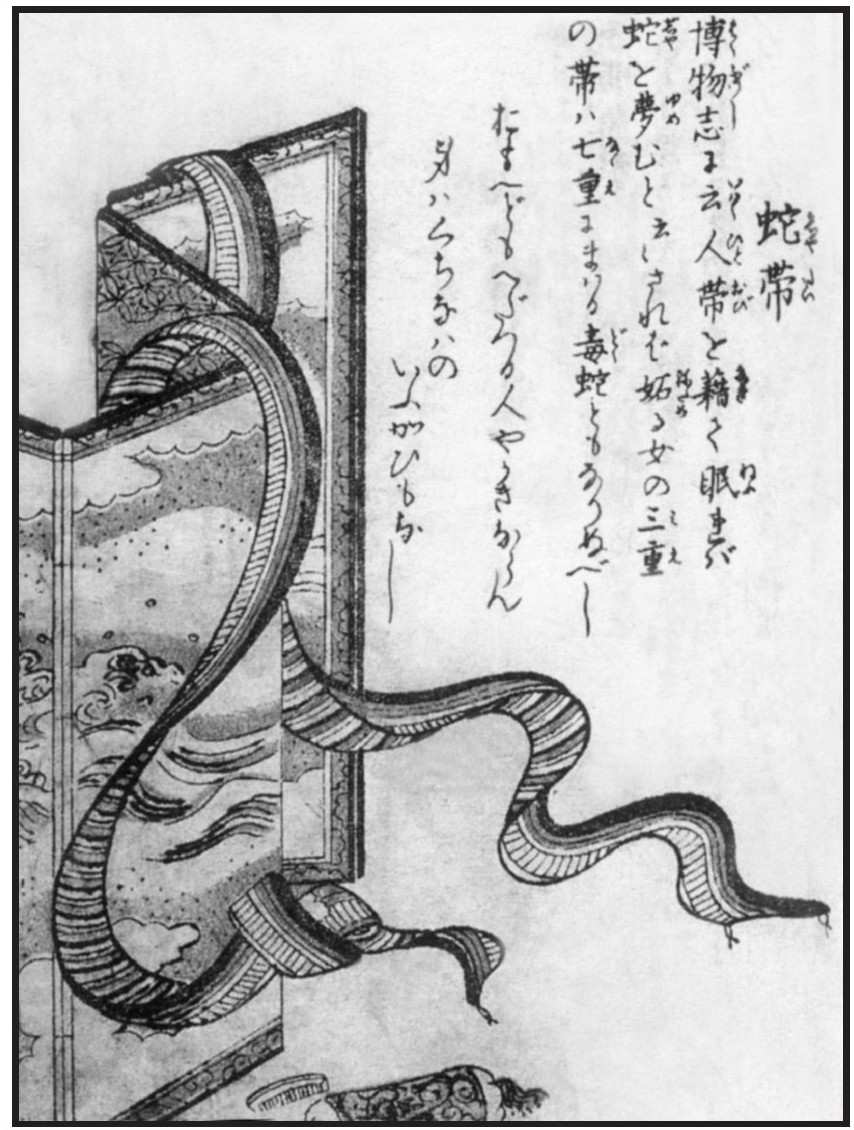 蛇帯
博物志に云人帯を藉て眠れバ
蛇を夢むと云〻されば妬る女の三重
の帯ハ七重にまハる毒蛇ともなりぬべし
おもへどもへだつる人やかきならん
身ハくちなハの
いふがひもなし